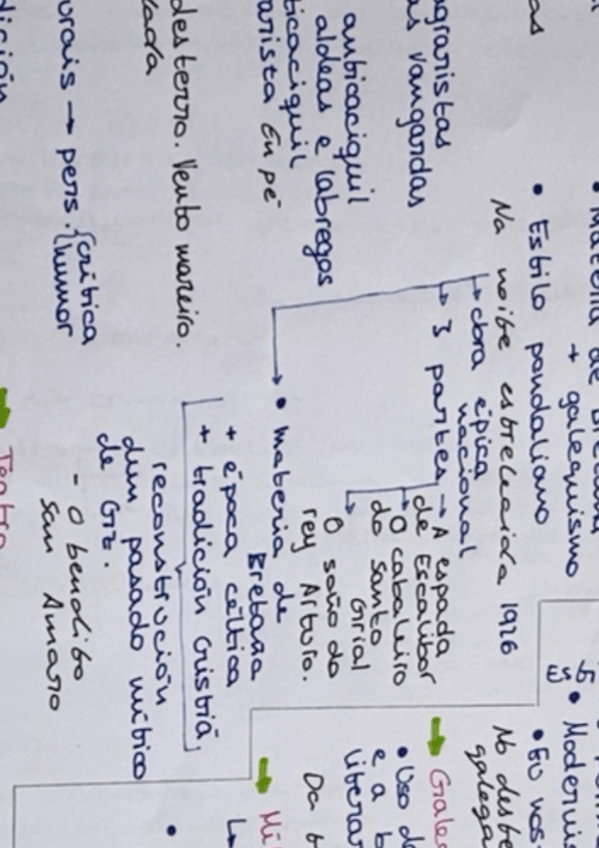 as
agraristas
vangardas
anticaciquil
aldeas e labregos
En pé
desterro. Vento mareiro.
→ pers. (crítica
(humor
+ galeguismo
• Estilo pondaliano
Na noite estrelecida 1926
→ obra épica
nacional
→ 3 partes → A espada
de Escalibor
→ O cabaleiro
do Santo
Grial
→ O soño do
rey Arturo.
• materia de
Bretaña
+ época céltica
+ tradición Cristiá
reconstrución
dun pasado mítico
de Gz.
- O bendito
San Amaro
Teatro
• Eu nos
No desterro
galega
Gales
• Uso de
e a
literar
Da